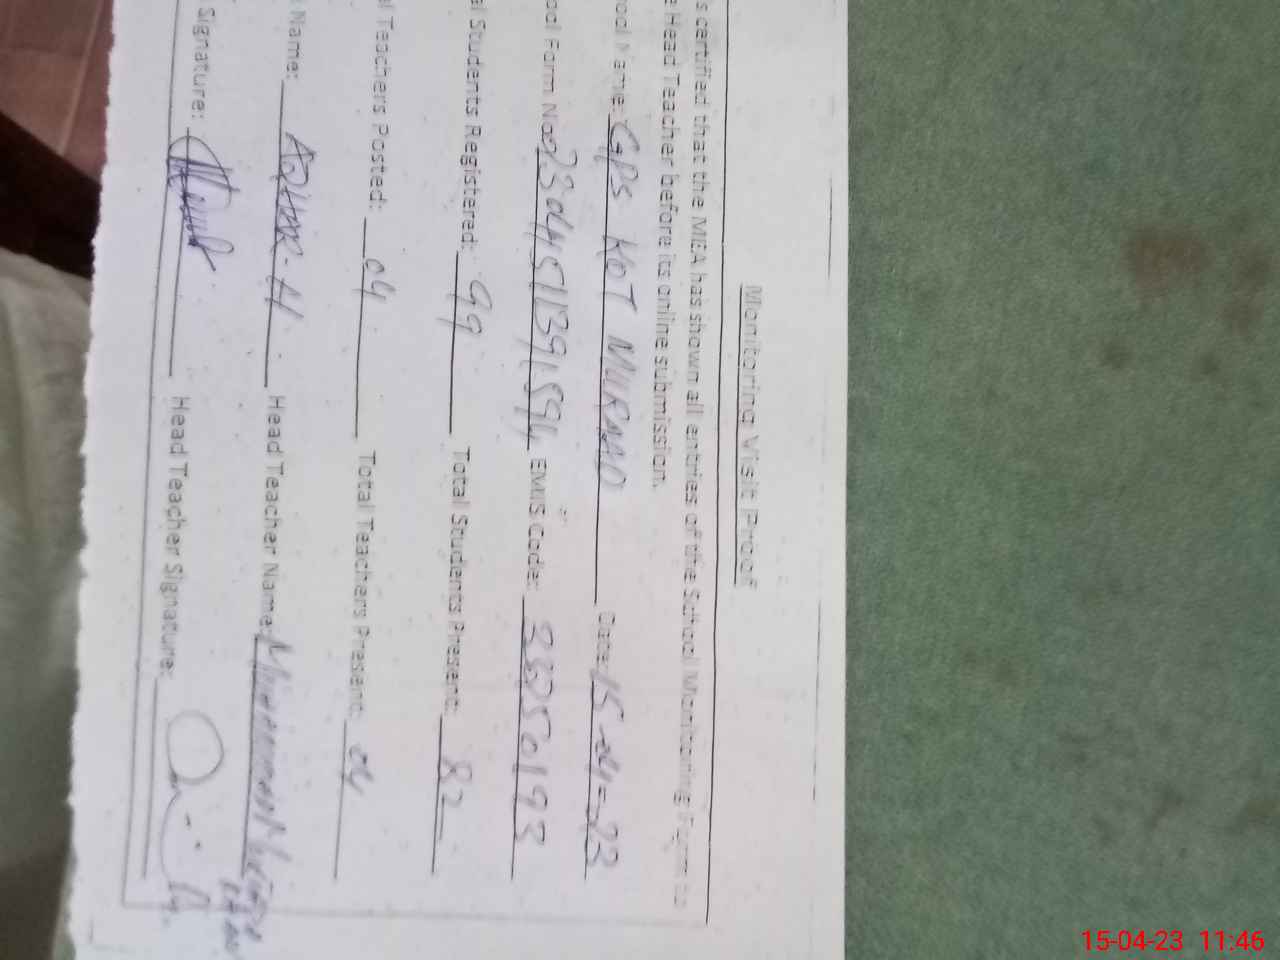 Monitoring Visit Proof
s certified that the MEA has shown all entries of the School Monitoring Form to
e Head Teacher before its online submission.
ool Name: GPS KOT MURAAD Date: 15-04-23
ool Form No: 23041511391594 EMIS Code: 33250193
al Students Registered: 99 Total Students Present: 82
al Teachers Posted: 04 Total Teachers Present: 04
Name: AZHAR-H Head Teacher Name: MUHAMMAD
Signature: Head Teacher Signature:
15-04-23 11:46